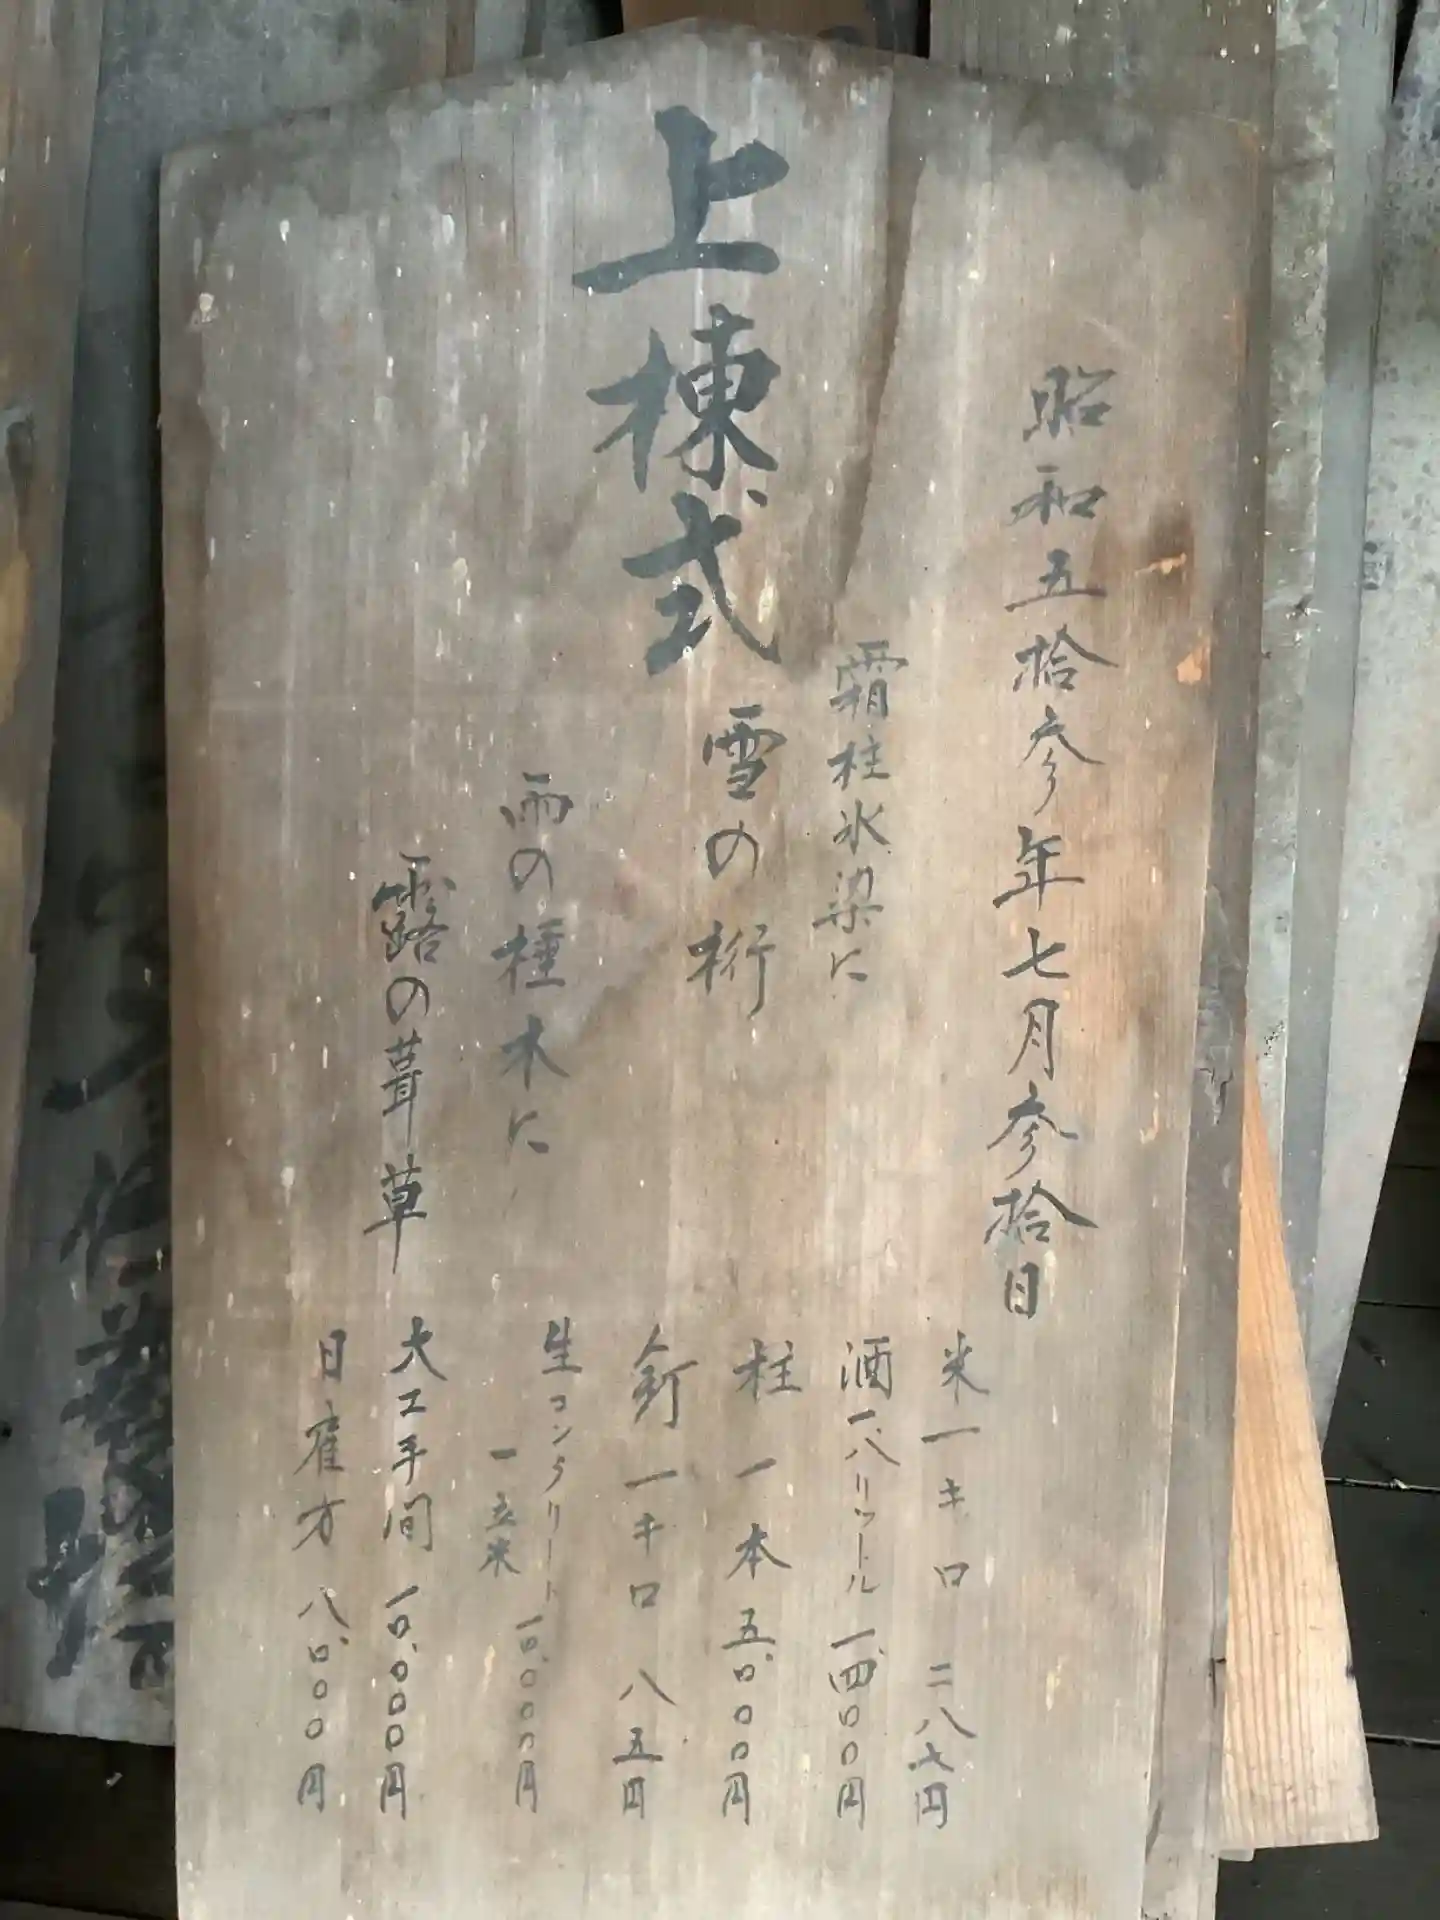 昭和五拾参年七月参拾日
上棟式
霜柱氷梁に
雪の桁
雨の棰木に
露の葺草
米一キロ 二八七円
酒一.八リットル 一、四〇〇円
柱一本 五〇、〇〇〇円
釘一キロ 八五円
生コンクリート
一立米 一〇、〇〇〇円
大工手間 一〇、〇〇〇円
日雇方 八、〇〇〇円